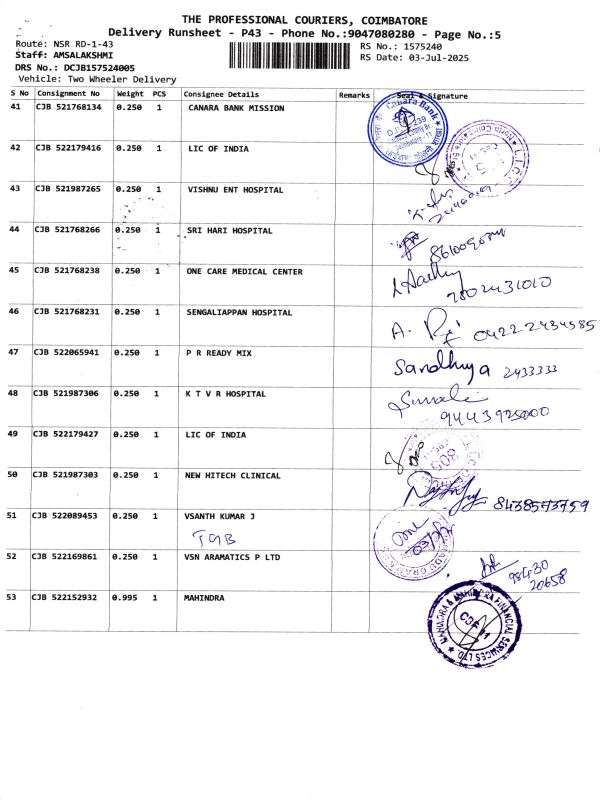 THE PROFESSIONAL COURIERS, COIMBATORE
Delivery Runsheet - P43 - Phone No.:9047080280 - Page No.:5
Route: NSR RD-1-43
RS No.: 1575240
Staff: AMSALAKSHMI
RS Date: 03-Jul-2025
DRS No.: DCJB157524005
Vehicle: Two Wheeler Delivery
S No Consignment No Weight PCS Consignee Details Remarks Seal & Signature
41 CJB 521768134 0.250 1 CANARA BANK MISSION
Canara Bank
42 CJB 522179416 0.250 1 LIC OF INDIA
43 CJB 521987265 0.250 1 VISHNU ENT HOSPITAL
44 CJB 521768266 0.250 1 SRI HARI HOSPITAL
45 CJB 521768238 0.250 1 ONE CARE MEDICAL CENTER
7502431010
46 CJB 521768231 0.250 1 SENGALIAPPAN HOSPITAL
04222434585
47 CJB 522065941 0.250 1 P R READY MIX
Sandhya 2433333
48 CJB 521987306 0.250 1 K T V R HOSPITAL
9443925000
49 CJB 522179427 0.250 1 LIC OF INDIA
805
50 CJB 521987303 0.250 1 NEW HITECH CLINICAL
8438573759
51 CJB 522089453 0.250 1 VSANTH KUMAR J
TGB
52 CJB 522169861 0.250 1 VSN ARAMATICS P LTD
98430
20658
53 CJB 522152932 0.995 1 MAHINDRA
MAHINDRA & MAHINDRA FINANCIAL SERVICES LTD.